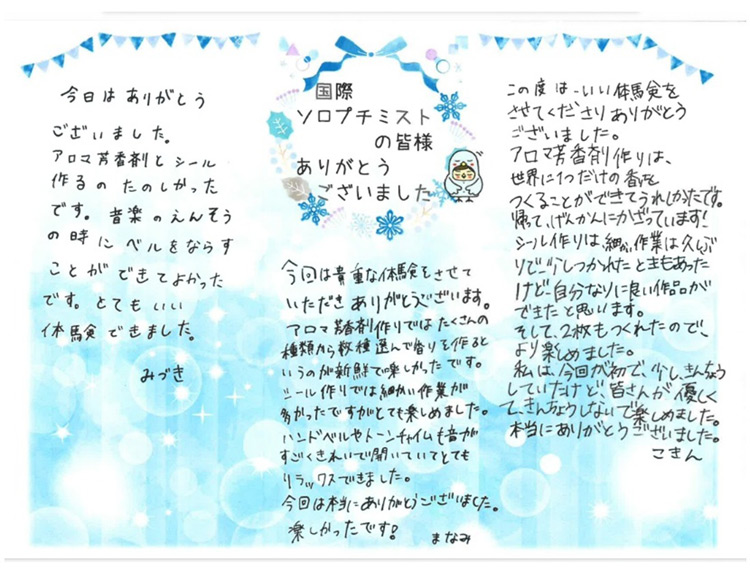 国際
ソロプチミスト
の皆様
ありがとう
ございました
今日は ありがとう
ございました。
アロマ芳香剤と シール
作るの たのしかった
です。音楽のえんそう
の時に ベルをならす
ことが できてよかった
です。とても いい
体験できました。
みづき
今回は貴重な体験をさせて
いただき ありがとうございます。
アロマ芳香剤作りでは たくさんの
種類から数種選んで香りを作ると
いうのが新鮮で楽しかったです。
シール作りでは細かい作業が
多かったですがとても楽しめました。
ハンドベルやトーンチャイムも音が
すごくきれいで聞いていてとても
リラックスできました。
今回は本当にありがとうございました。
楽しかったです!
まなみ
この度は、いい体験を
させてくださり ありがとう
ございました。
アロマ芳香剤作りは、
世界に1つだけの香りを
つくることができてうれしかったです。
帰って、げんかんにかざっています!
シール作りは、細かい作業は久しぶ
りで、少しつかれたときもあった
けど自分なりに良い作品が
できたと思います。
そして、2枚もつくれたので、
より楽しめました。
私は、今回が初で、少しきんちょう
していたけど、皆さんが優しく
て、きんちょうしないで楽しめました。
本当にありがとうございました。
こきん